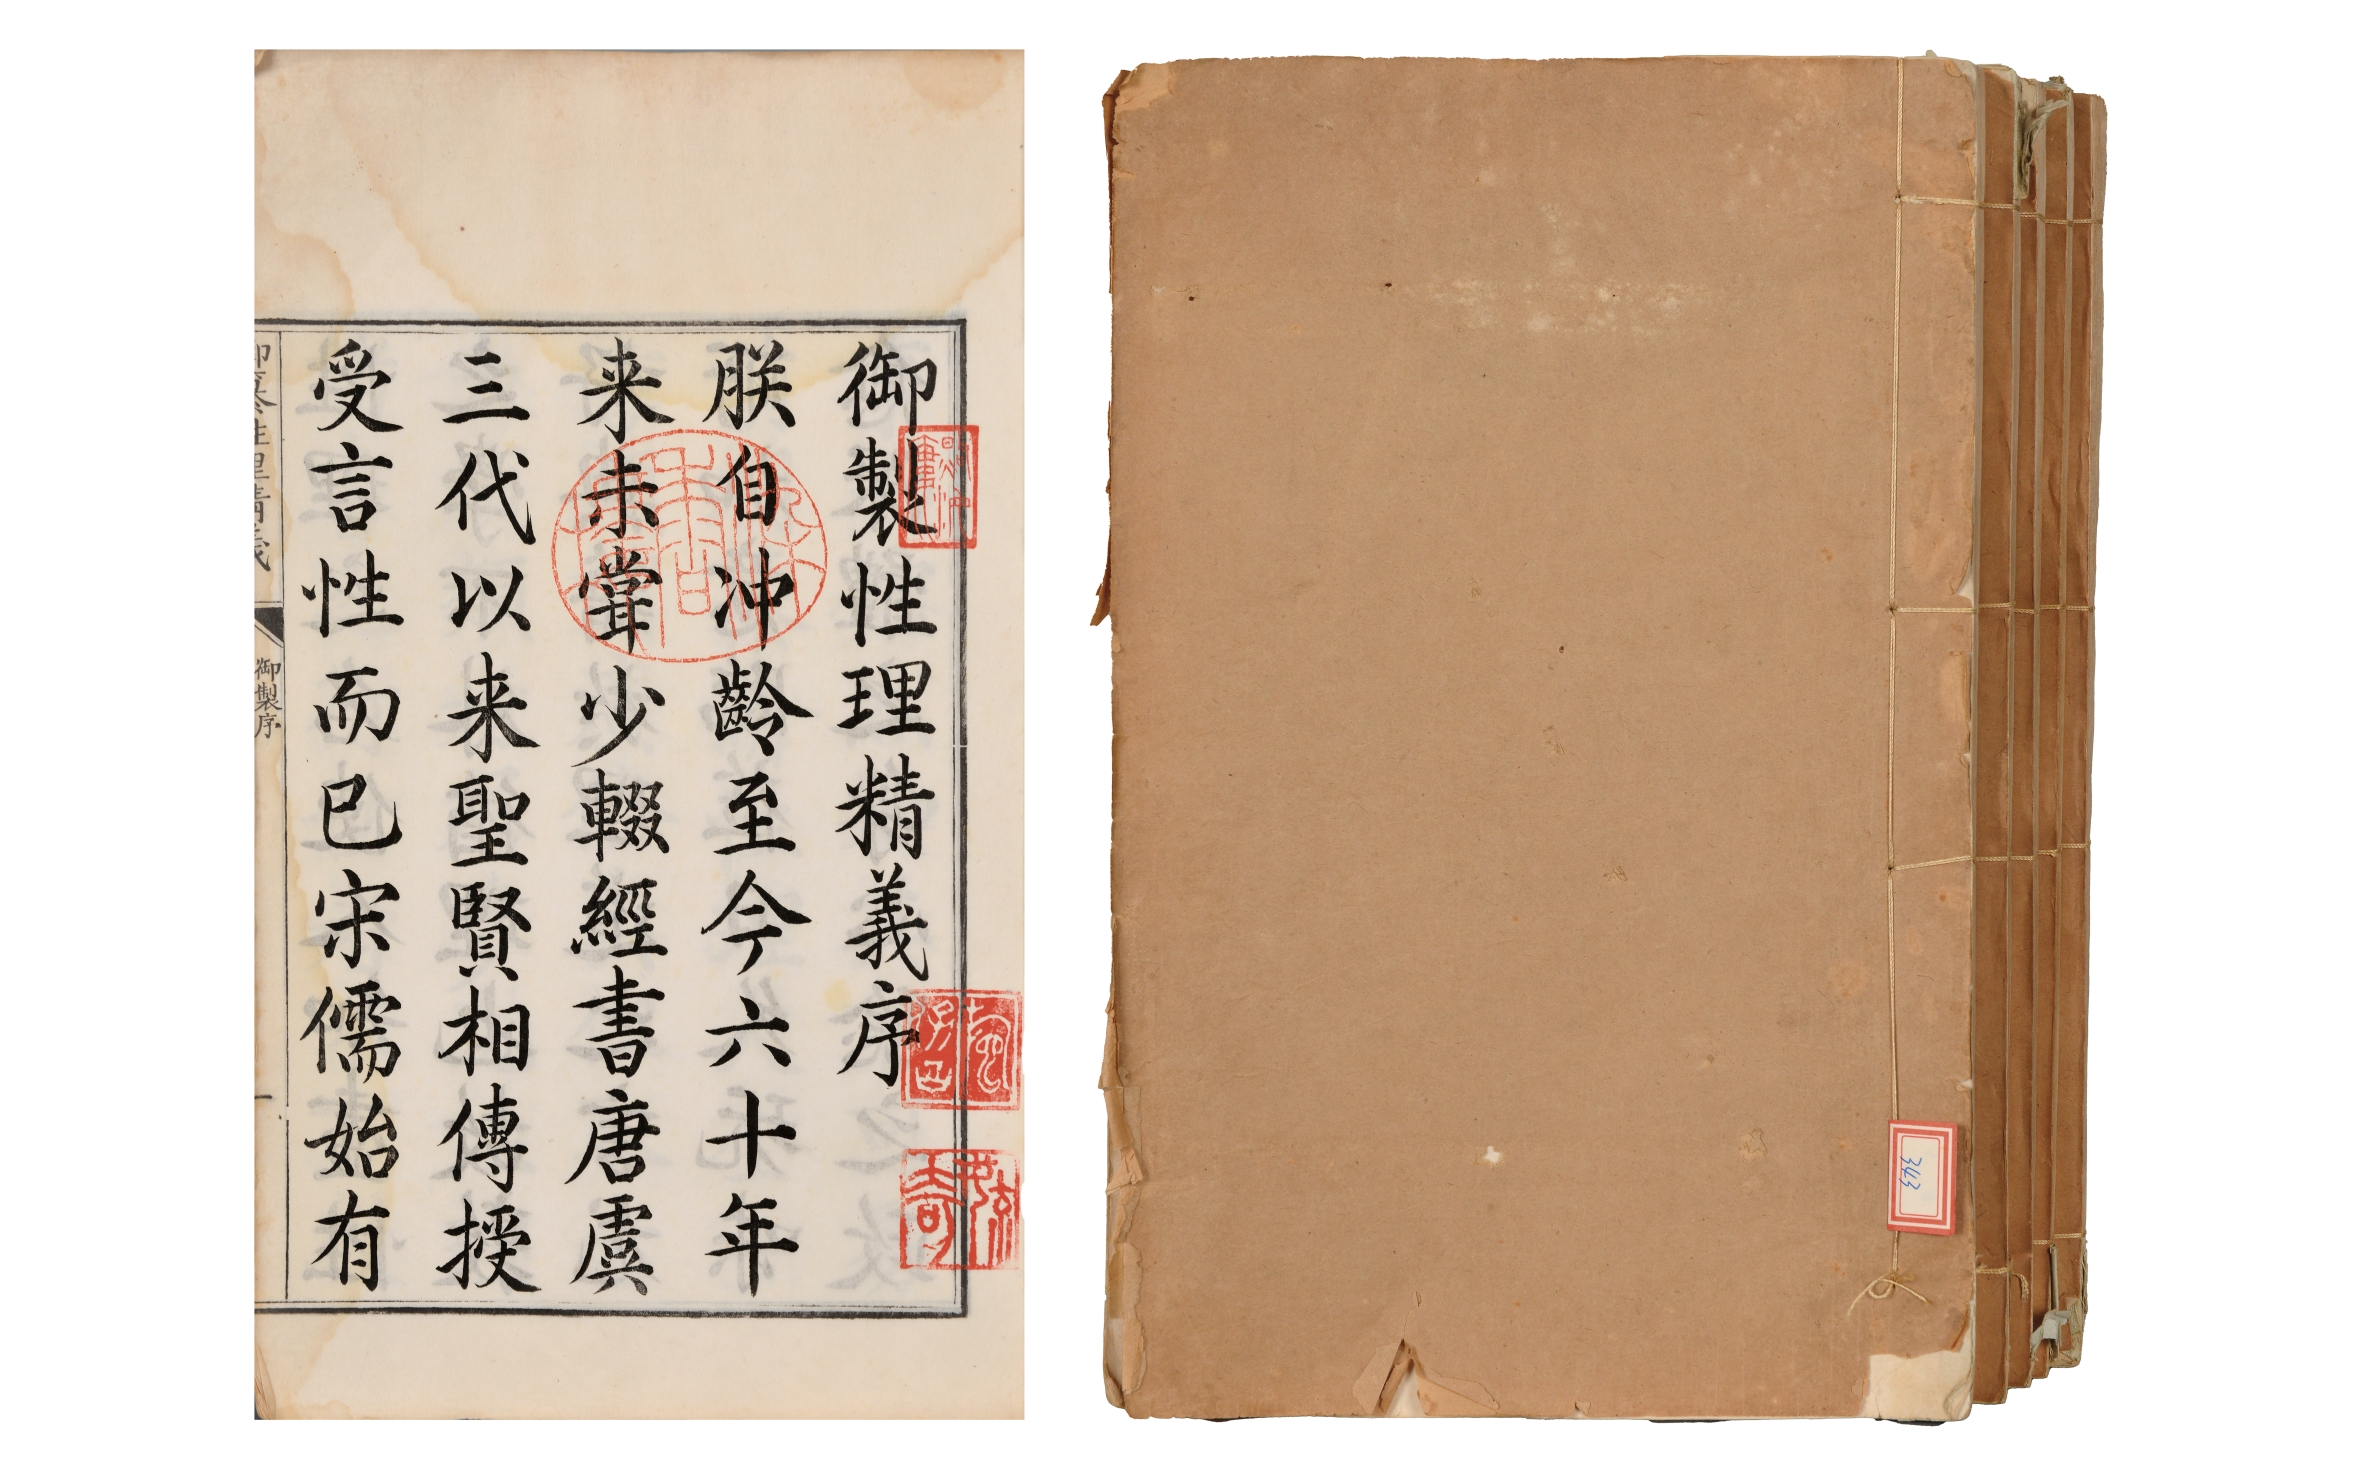 御製性理精義序
朕自沖齡至今六十年
来未甞少輟經書唐虞
三代以来聖賢相傳授
受言性而已宋儒始有
御纂性理精義
御製序
一
343